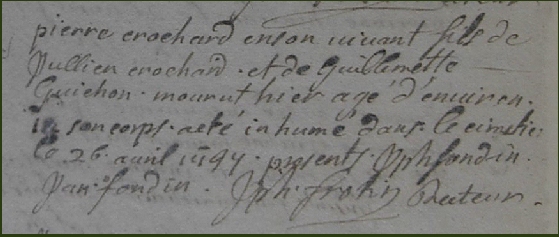 pierre crochard en son vivant fils de
Jullien crochard. et de Guillemette
Guichon. mourut hier agé d'environ.
son corps. a eté inhumé dans le cimetie
le 26 avril presents. Jph fondin.
Jan. fondin. Jph. frohin Recteur.